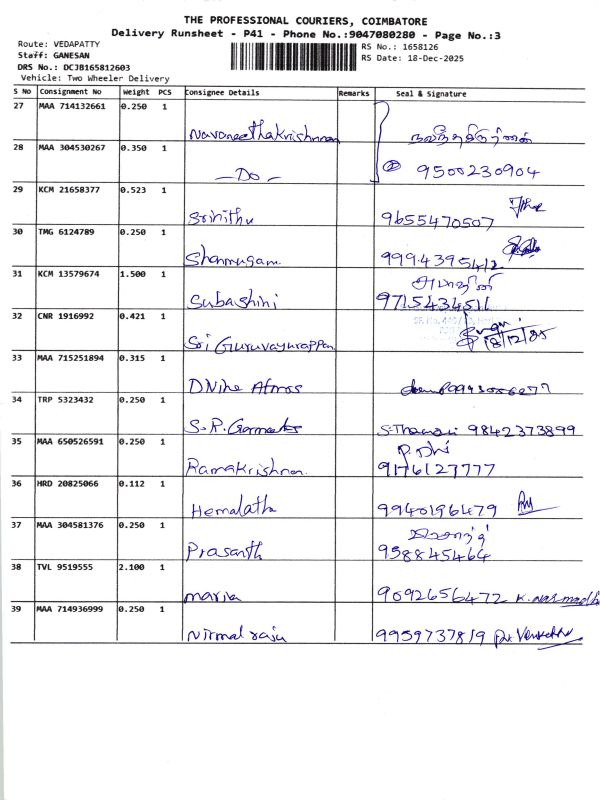 THE PROFESSIONAL COURIERS, COIMBATORE
Delivery Runsheet - P41 - Phone No.:9047080280 - Page No.:3
Route: VEDAPATTY
Staff: GANESAN
DRS No.: DCJB165812603
Vehicle: Two Wheeler Delivery
RS No.: 1658126
RS Date: 18-Dec-2025
S No Consignment No Weight PCS Consignee Details Remarks Seal & Signature
27 MAA 714132661 0.250 1
Navaneethakrishnan
28 MAA 304530267 0.350 1
-Do- 2 9500230904
29 KCM 21658377 0.523 1
Srinithu 9655470507
30 TMG 6124789 0.250 1
Shanmugam 9994395412
31 KCM 13579674 1.500 1
Subashini 9715434511
32 CNR 1916992 0.421 1
Sri Guruvayurappan 18/12/25
33 MAA 715251894 0.315 1
DNike Atmos
34 TRP 5323432 0.250 1
S.R. Garments 9842373899
35 MAA 650526591 0.250 1
Ramakrishnan 9176127777
36 HRD 20825066 0.112 1
Hemalatha 9940196479
37 MAA 304581376 0.250 1
பிரசாந்த்
Prasanth 958845464
38 TVL 9519555 2.100 1
maria 9092656472 K. Narmadha
39 MAA 714936999 0.250 1
Nirmal raju 9959737819